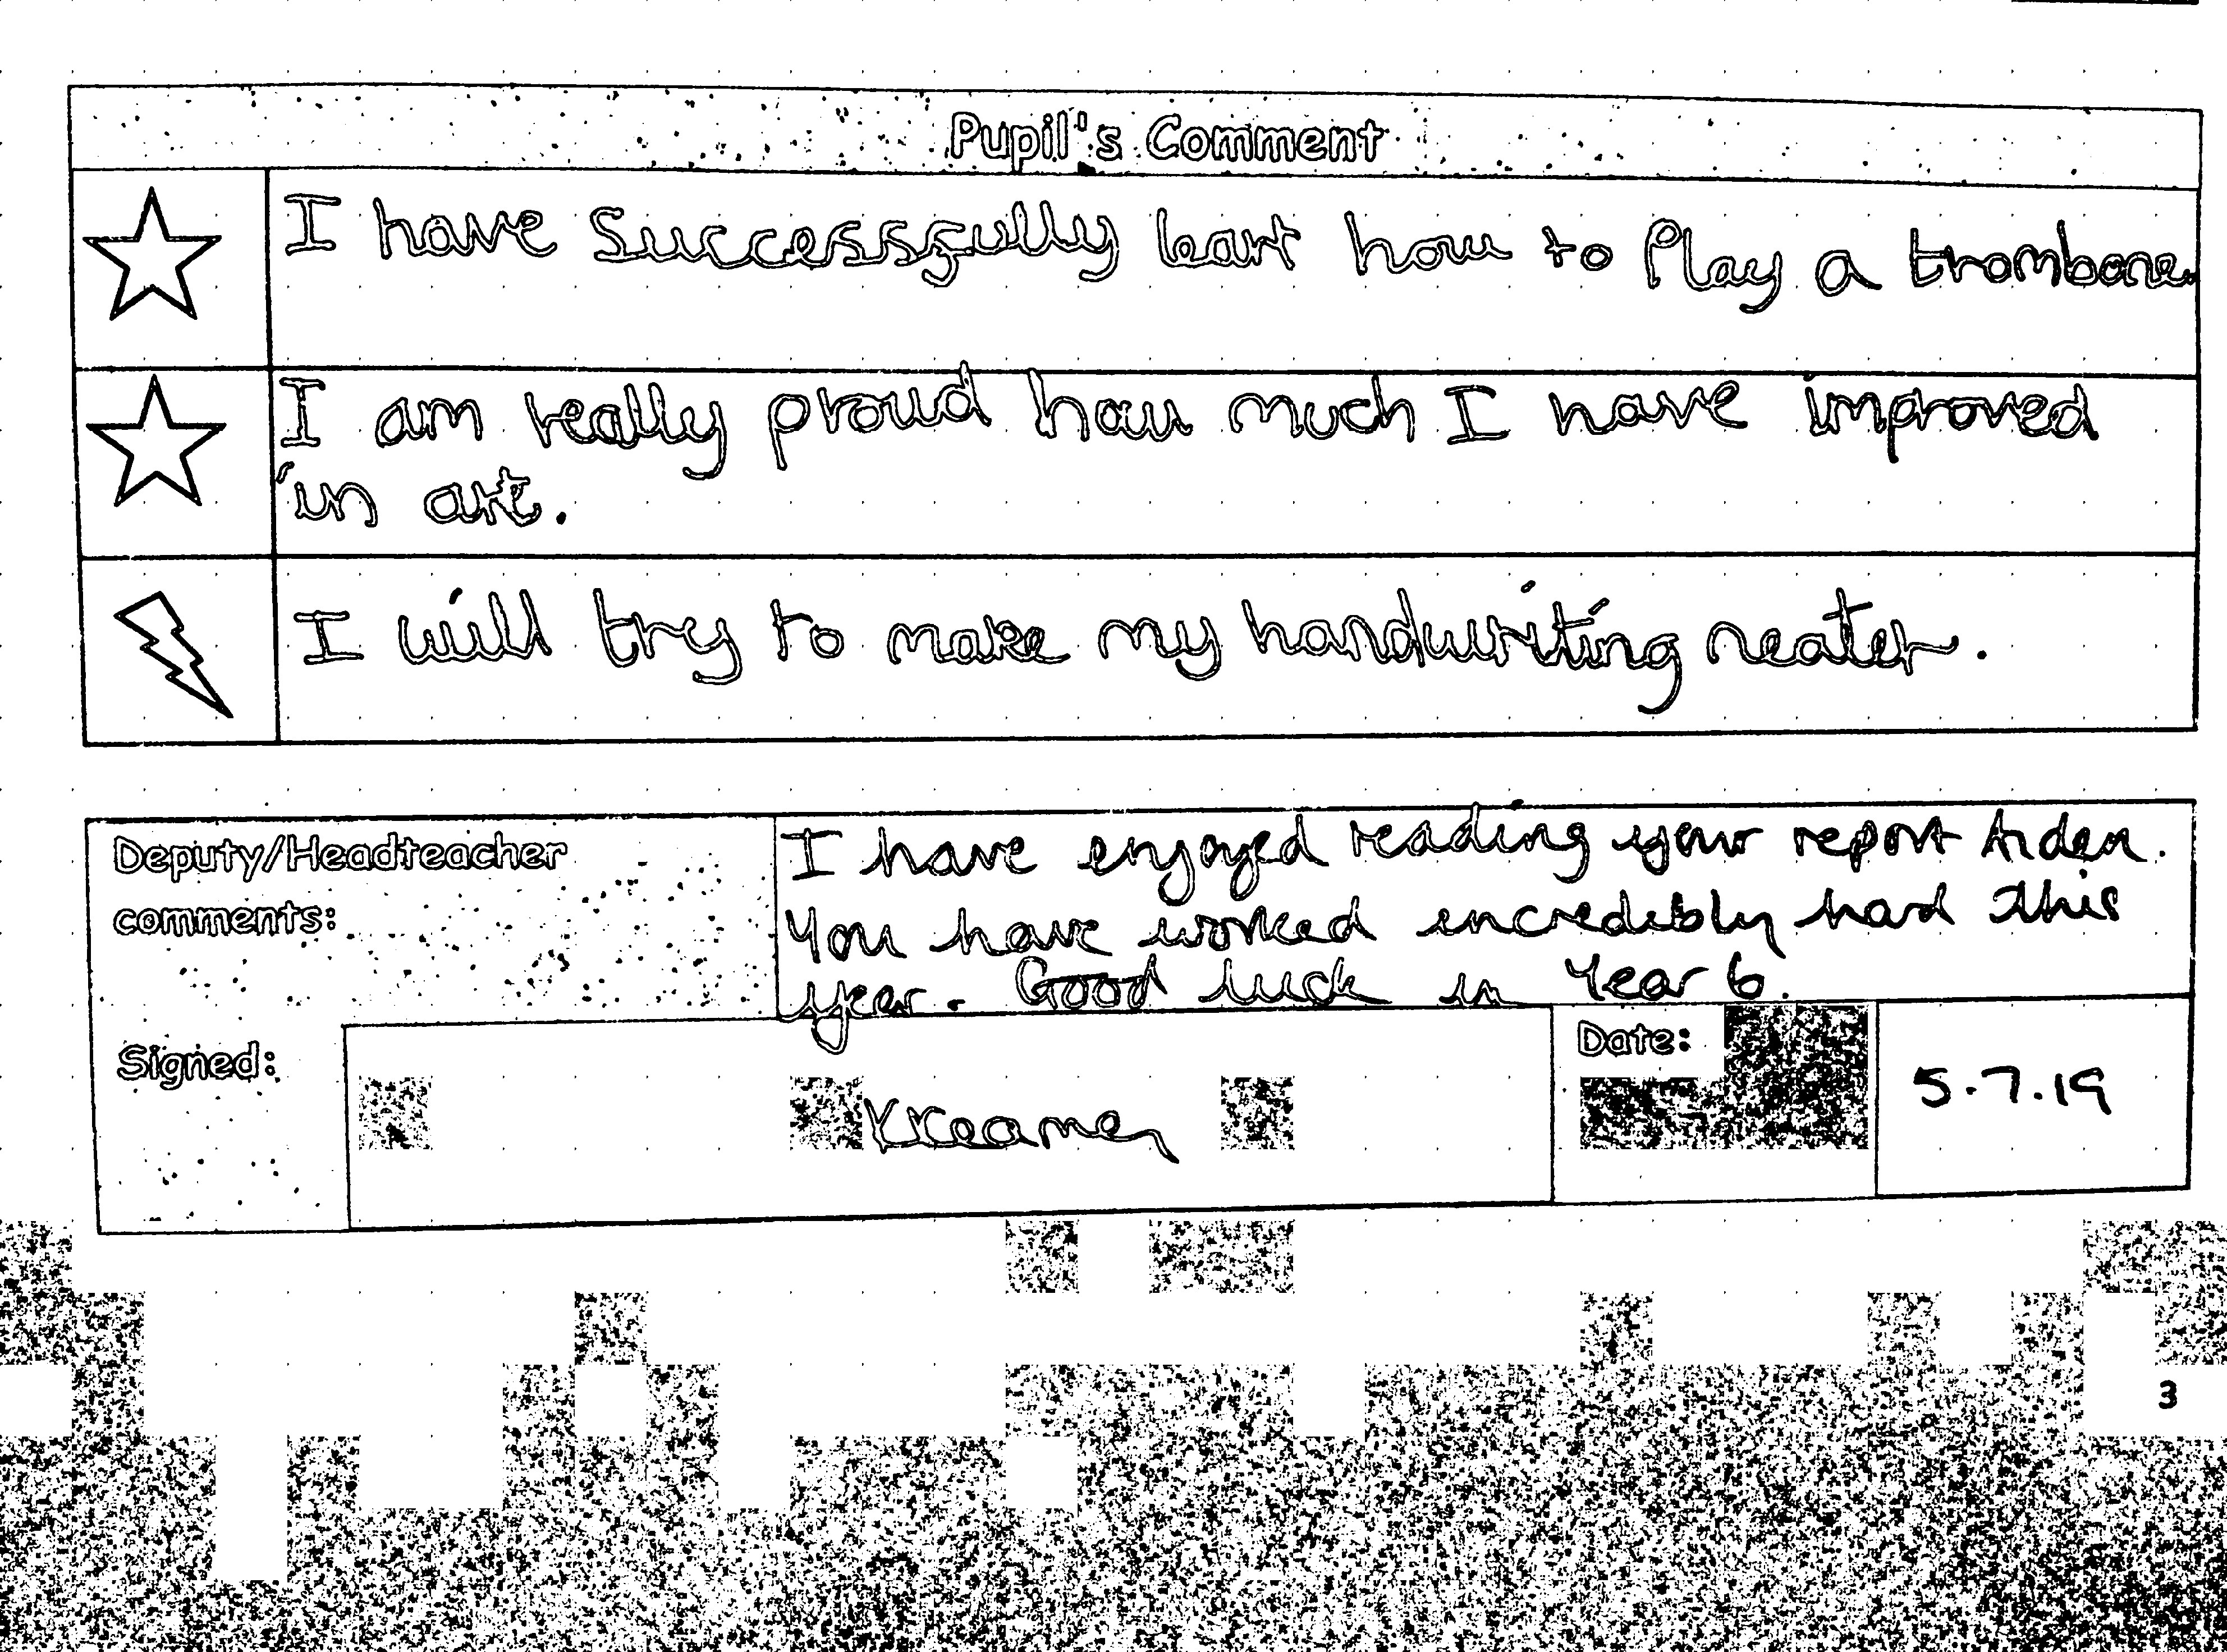 Pupil's Comment
I have Successfully leart how to Play a trombone.
I am really proud how much I have improved
in art.
I will try to make my handwriting neater.
Deputy/Headteacher
comments:
I have enjoyed reading your report Aiden.
You have worked incredibly hard this
year. Good luck in Year 6.
Signed:
Kreamer
Date:
5.7.19
3